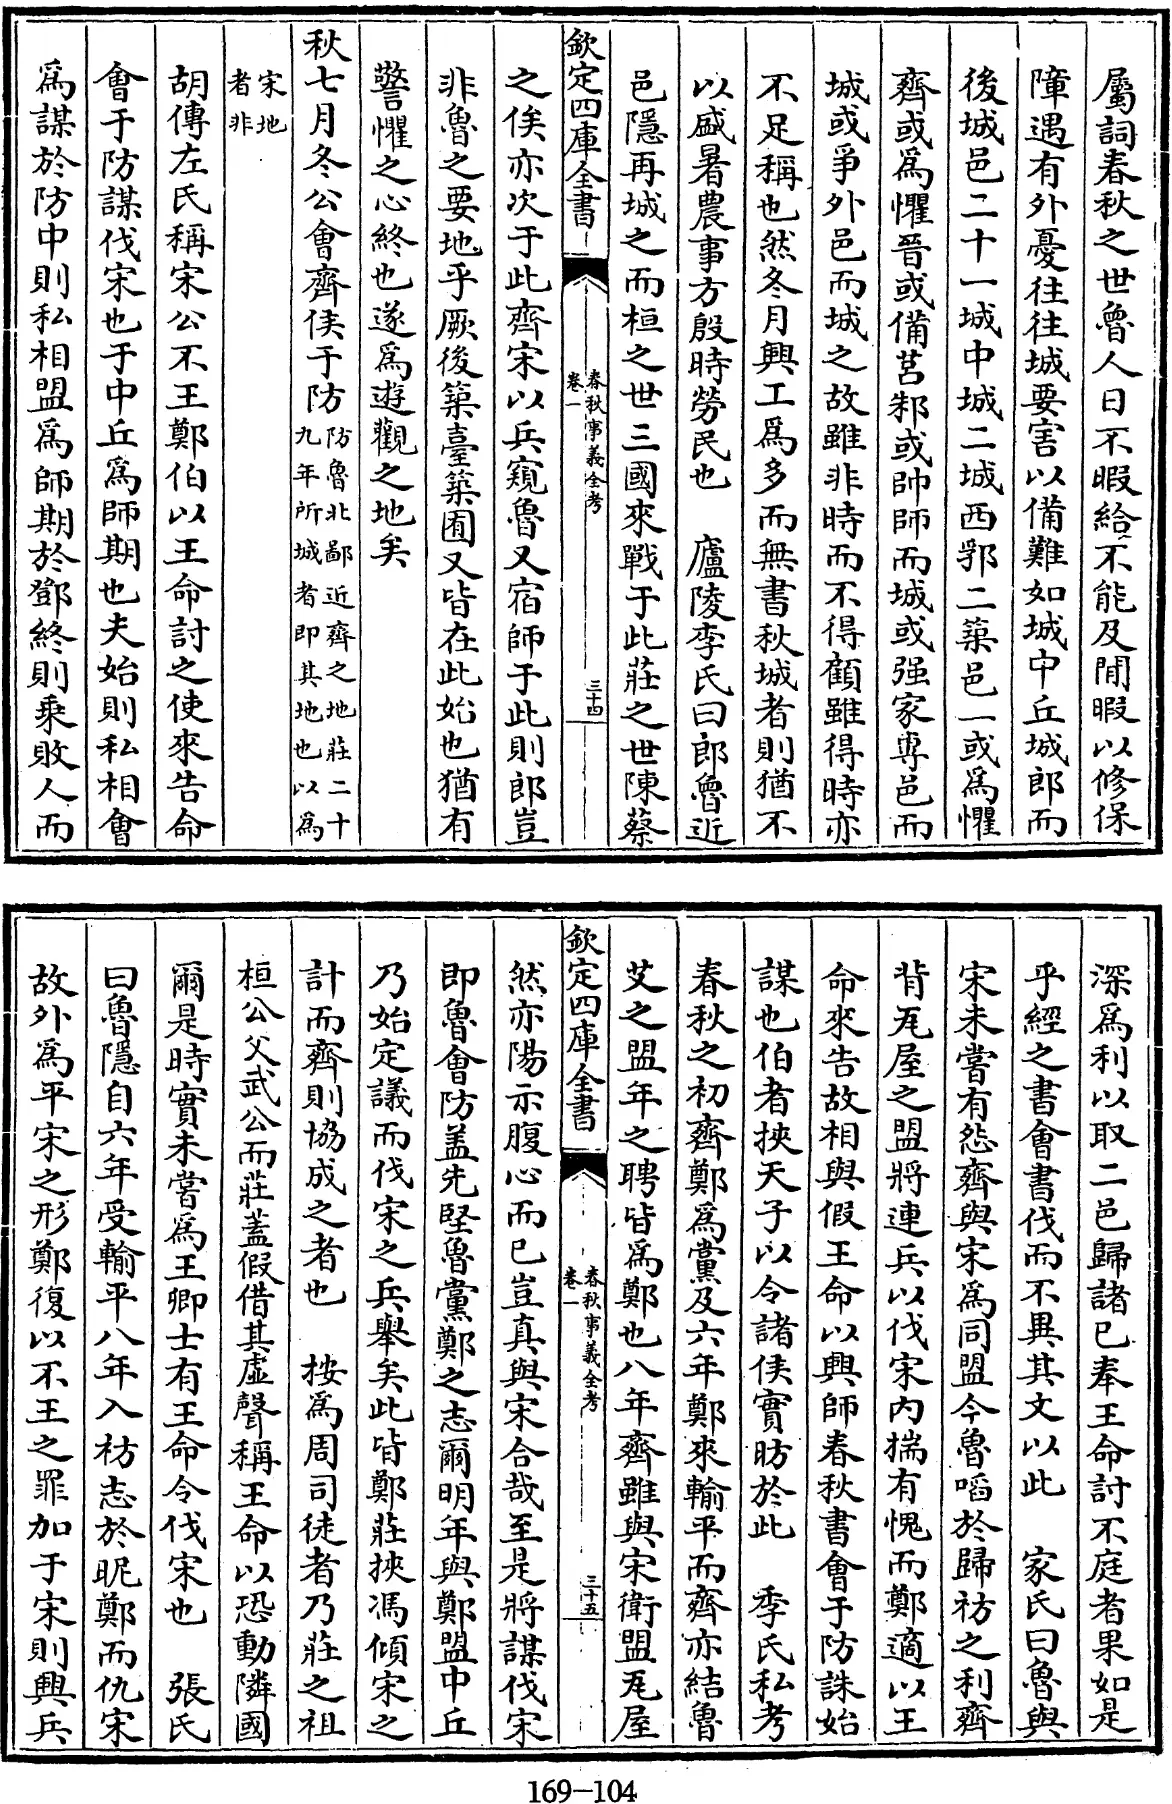 屬詞春秋之世魯人日不暇給不能及閒暇以修保
障遇有外憂往往城要害以備難如城中丘城郎而
後城邑二十一城中城二城西郛二築邑一或爲懼
齊或爲懼晉或備莒邾或帥師而城或强家專邑而
城或爭外邑而城之故雖非時而不得顧雖得時亦
不足稱也然冬月興工爲多而無書秋城者則猶不
以盛暑農事方殷時勞民也　廬陵李氏曰郎魯近
邑隱再城之而桓之世三國來戰于此莊之世陳蔡
欽定四庫全書
春秋事義全考
卷一
三十四
之俟亦次于此齊宋以兵窺魯又宿師于此則郎豈
非魯之要地乎厥後築臺築囿又皆在此始也猶有
警懼之心終也遂爲遊觀之地矣
秋七月冬公會齊侯于防防魯北鄙近齊之地莊二十
九年所城者即其地也以爲
宋地
者非
胡傳左氏稱宋公不王鄭伯以王命討之使來告命
會于防謀伐宋也于中丘爲師期也夫始則私相會
爲謀於防中則私相盟爲師期於鄧終則乘敗人而
深爲利以取二邑歸諸已奉王命討不庭者果如是
乎經之書會書伐而不異其文以此　家氏曰魯與
宋未嘗有怨齊與宋爲同盟今魯啗於歸祊之利齊
背瓦屋之盟將連兵以伐宋内揣有愧而鄭適以王
命來告故相與假王命以興師春秋書會于防誅始
謀也伯者挾天子以令諸侯實昉於此　季氏私考
春秋之初齊鄭爲黨及六年鄭來輸平而齊亦結魯
艾之盟年之聘皆爲鄭也八年齊雖與宋衛盟瓦屋
欽定四庫全書
春秋事義全考
卷一
三十五
然亦陽示腹心而已豈真與宋合哉至是將謀伐宋
即魯會防盖先堅魯黨鄭之志爾明年與鄭盟中丘
乃始定議而伐宋之兵舉矣此皆鄭莊挾馮傾宋之
計而齊則協成之者也　按爲周司徒者乃莊之祖
桓公父武公而莊蓋假借其虛聲稱王命以恐動隣國
爾是時實未嘗爲王卿士有王命令伐宋也　張氏
曰魯隱自六年受輸平八年入祊志於昵鄭而仇宋
故外爲平宋之形鄭復以不王之罪加于宋則興兵
169-104